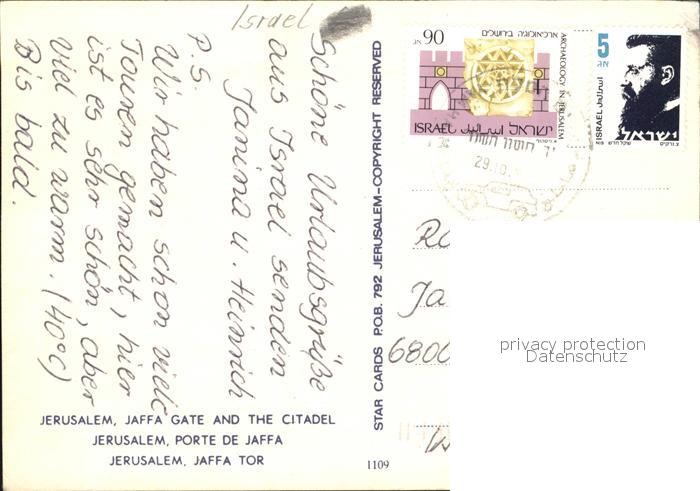 Israel
Schöne Urlaubsgrüße
aus Israel senden
Janina u. Heinrich
P.S.
Wir haben schon viele
Touren gemacht, hier
ist es sehr schön, aber
viel zu warm. (40°C)
Bis bald.
JERUSALEM, JAFFA GATE AND THE CITADEL
JERUSALEM, PORTE DE JAFFA
JERUSALEM, JAFFA TOR
1109
STAR CARDS P.O.B. 792 JERUSALEM–COPYRIGHT RESERVED
90 אג
ארכיאולוגיה בירושלים
ARCHAEOLOGY IN JERUSALEM
ISRAEL اسرائيل ישראל
5
אג
ISRAEL اسرائيل
ישראל
שקל חדש
29.10.
Ja
6800
privacy protection
Datenschutz